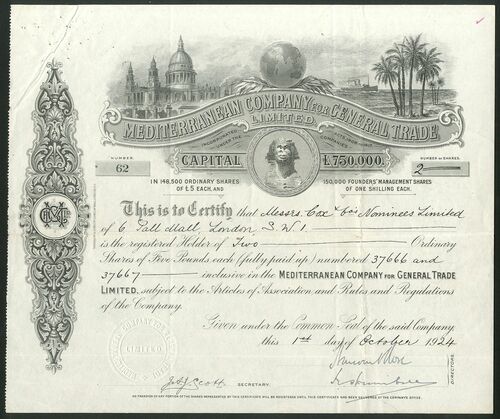 MEDITERRANEAN COMPANY FOR GENERAL TRADE
LIMITED.
INCORPORATED UNDER THE COMPANIES ACTS 1908-1917
NUMBER
62
CAPITAL £750,000.
NUMBER OF SHARES
2
IN 148,500 ORDINARY SHARES OF £5 EACH, AND
150,000 FOUNDERS' MANAGEMENT SHARES OF ONE SHILLING EACH.
This is to Certify that Messrs. Cox & Co's Nominees Limited
of 6 Pall Mall, London, S.W.1.
is the registered Holder of Two Ordinary
Shares of Five Pounds each (fully paid up) numbered 37666 and
37667 inclusive in the MEDITERRANEAN COMPANY FOR GENERAL TRADE
LIMITED, subject to the Articles of Association and Rules and Regulations
of the Company.
Given under the Common Seal of the said Company,
this 1st day of October 1924.
SECRETARY.
DIRECTORS.
NO TRANSFER OF ANY PORTION OF THE SHARES REPRESENTED BY THIS CERTIFICATE WILL BE REGISTERED UNTIL THIS CERTIFICATE HAS BEEN DELIVERED AT THE COMPANY'S OFFICE.
LIMITED